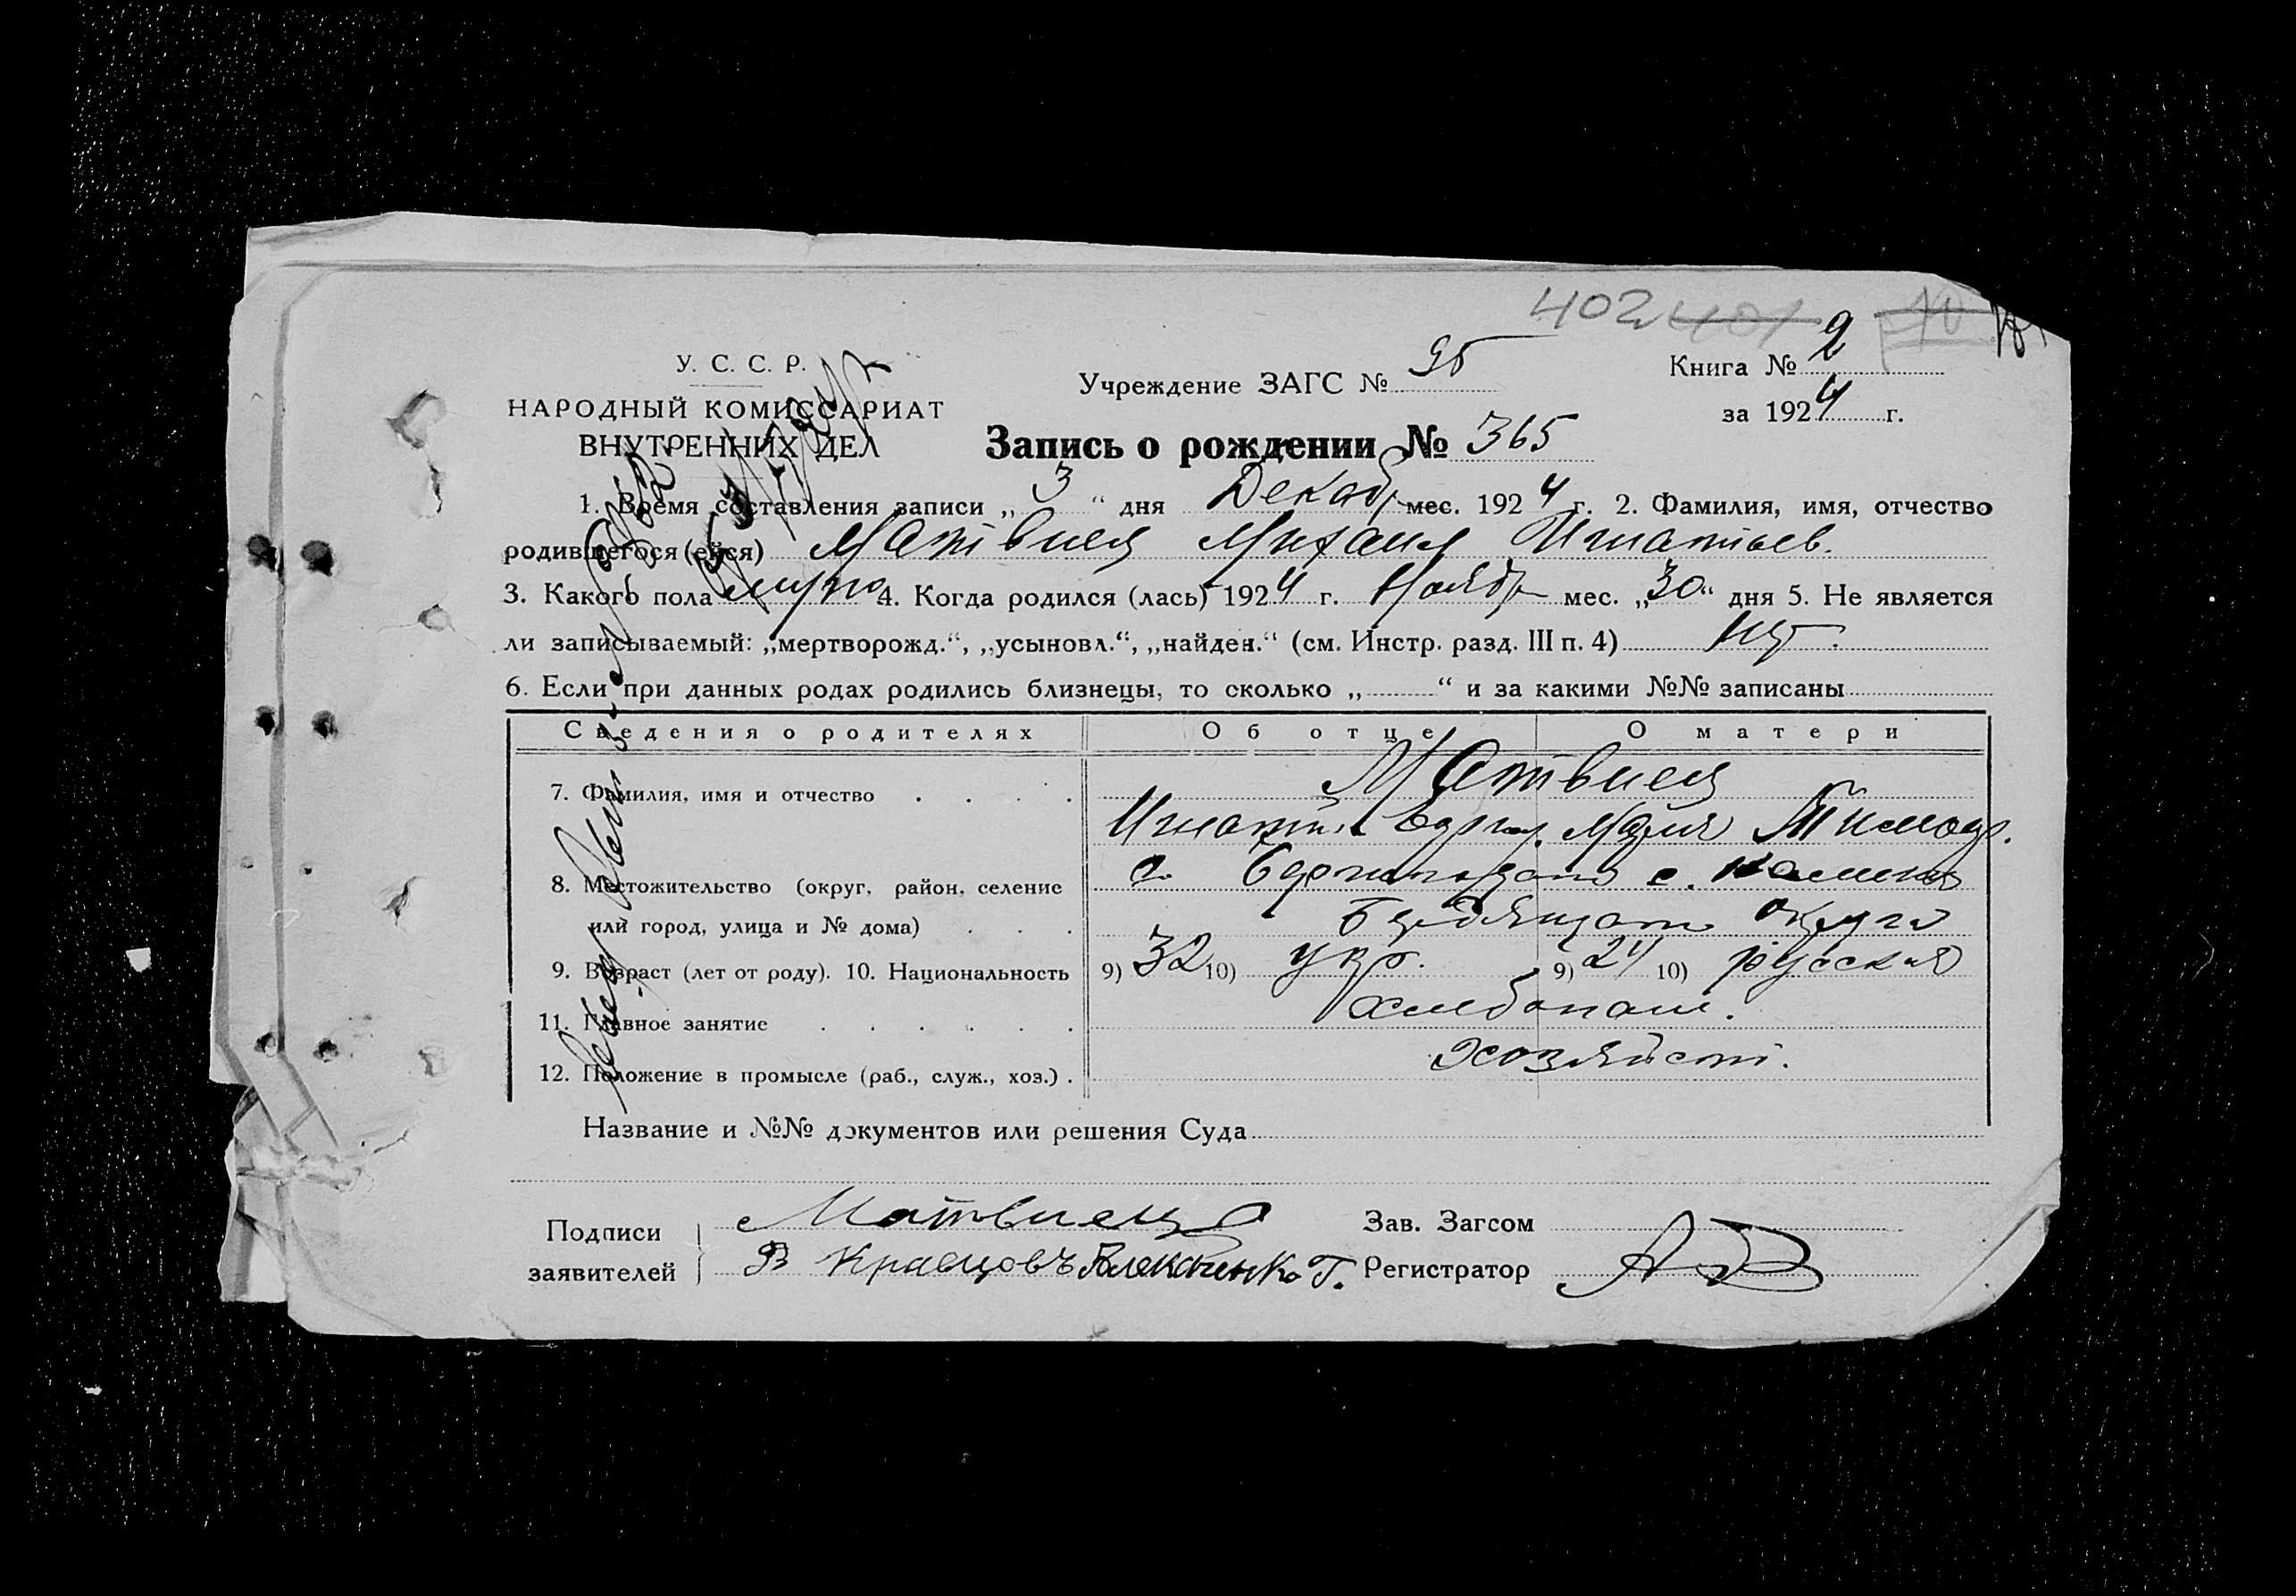 402 401
У. С. С. Р.
НАРОДНЫЙ КОМИССАРИАТ
ВНУТРЕННИХ ДЕЛ
Учреждение ЗАГС № 95
Книга № 2
за 1924 г.
Запись о рождении № 365
1. Время составления записи „3“ дня Декаб. мес. 1924 г. 2. Фамилия, имя, отчество
родившегося (ейся) Матвиец Михаил Игнатьев.
3. Какого пола муж 4. Когда родился (лась) 1924 г. Ноябр мес. „30“ дня 5. Не является
ли записываемый: „мертворожд.“, „усыновл.“, „найден.“ (см. Инстр. разд. III п. 4) Нет.
6. Если при данных родах родились близнецы, то сколько „ “ и за какими №№ записаны
Сведения о родителях Об отце О матери
7. Фамилия, имя и отчество Матвиец
Игнатий Мария Тимоф.
8. Местожительство (округ, район, селение с.
или город, улица и № дома) округа
9. Возраст (лет от роду). 10. Национальность 9) 32 10) укр. 9) 24 10) русская
11. Главное занятие хлебопаш.
12. Положение в промысле (раб., служ., хоз.) хозяйств.
Название и №№ документов или решения Суда
Подписи заявителей Матвиец
В Кравцовъ Алексеенко Г.
Зав. Загсом
Регистратор